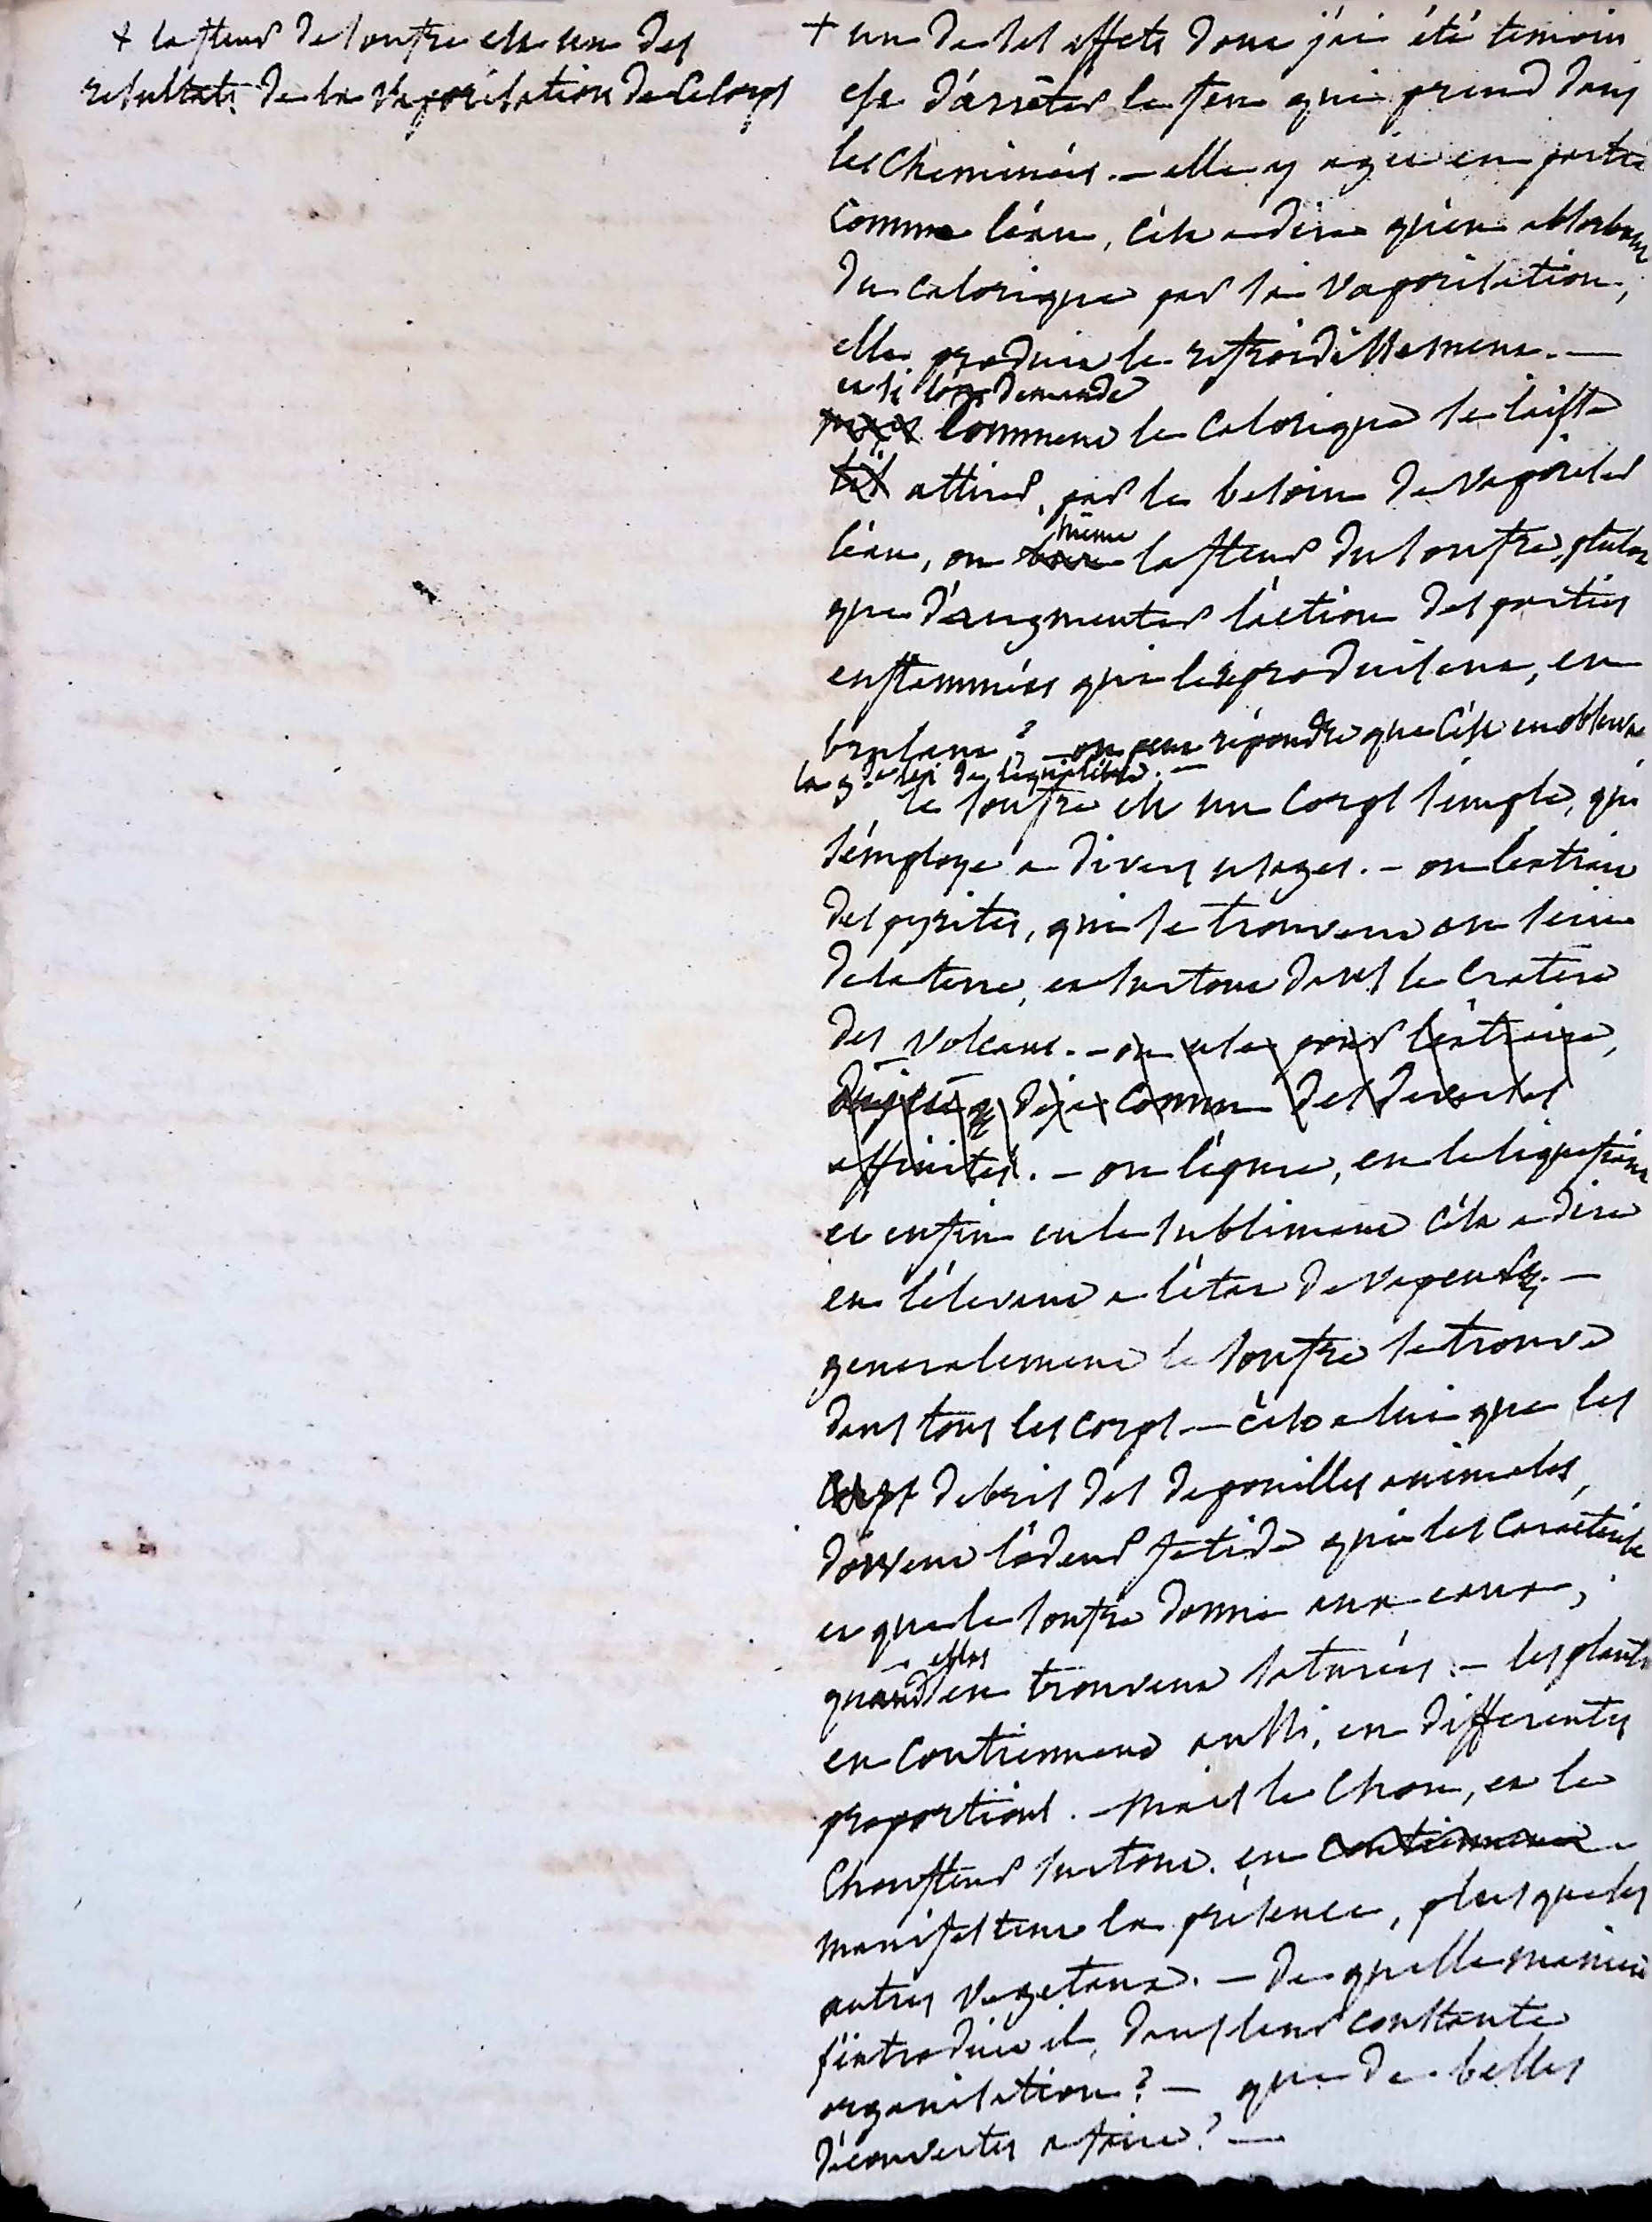 + la fleur de soufre est un des
resultats de la vaporisation de ce corps
+ un de ses effets dont j'ai été temoin
est d'arrêter le feu qui prend dans
les cheminées. — elle y agit en partie
comme l'eau, c'est a dire qu'en absorbant
du calorique par sa vaporisation,
elle produit le refroidissement. —
et si l'on demande
comment le calorique se laisse
attirer, par le besoin de vaporiser
l'eau, ou même la fleur du soufre, plutot
que d'augmenter l'action des parties
enflammées qui le reproduisent, en
brulant ? — on peut répondre que c'est en observant
la gde loi de l'équilibre. —
le soufre est un corps simple, qui
s'employe a divers usages. — on l'extrait
des pyrites, qui se trouvent au sein
de la terre, et surtout dans le cratere
des volcans. — on use pour l'extraire,
deja connu des diverses
affinités. — on l'épure, en le liquefiant
et enfin en le sublimant c'est a dire
en l'élevant a l'état de vapeurs. —
generalement le soufre se trouve
dans tous les corps. — c'est a lui que les
corps debris des depouilles animales,
doivent l'odeur fetide qui les caracterise
et que le soufre donne aux eaux,
quand elles en trouvent saturées. — les plantes
en contiennent aussi, en differentes
proportions. — mais le chou, et le
choufleur surtout. en contiennent
manifestent la présence, plus que les
autres vegetaux. — de quelle maniere
s'introduit il, dans leur constante
organisation ? — que de belles
découvertes a faire ? —